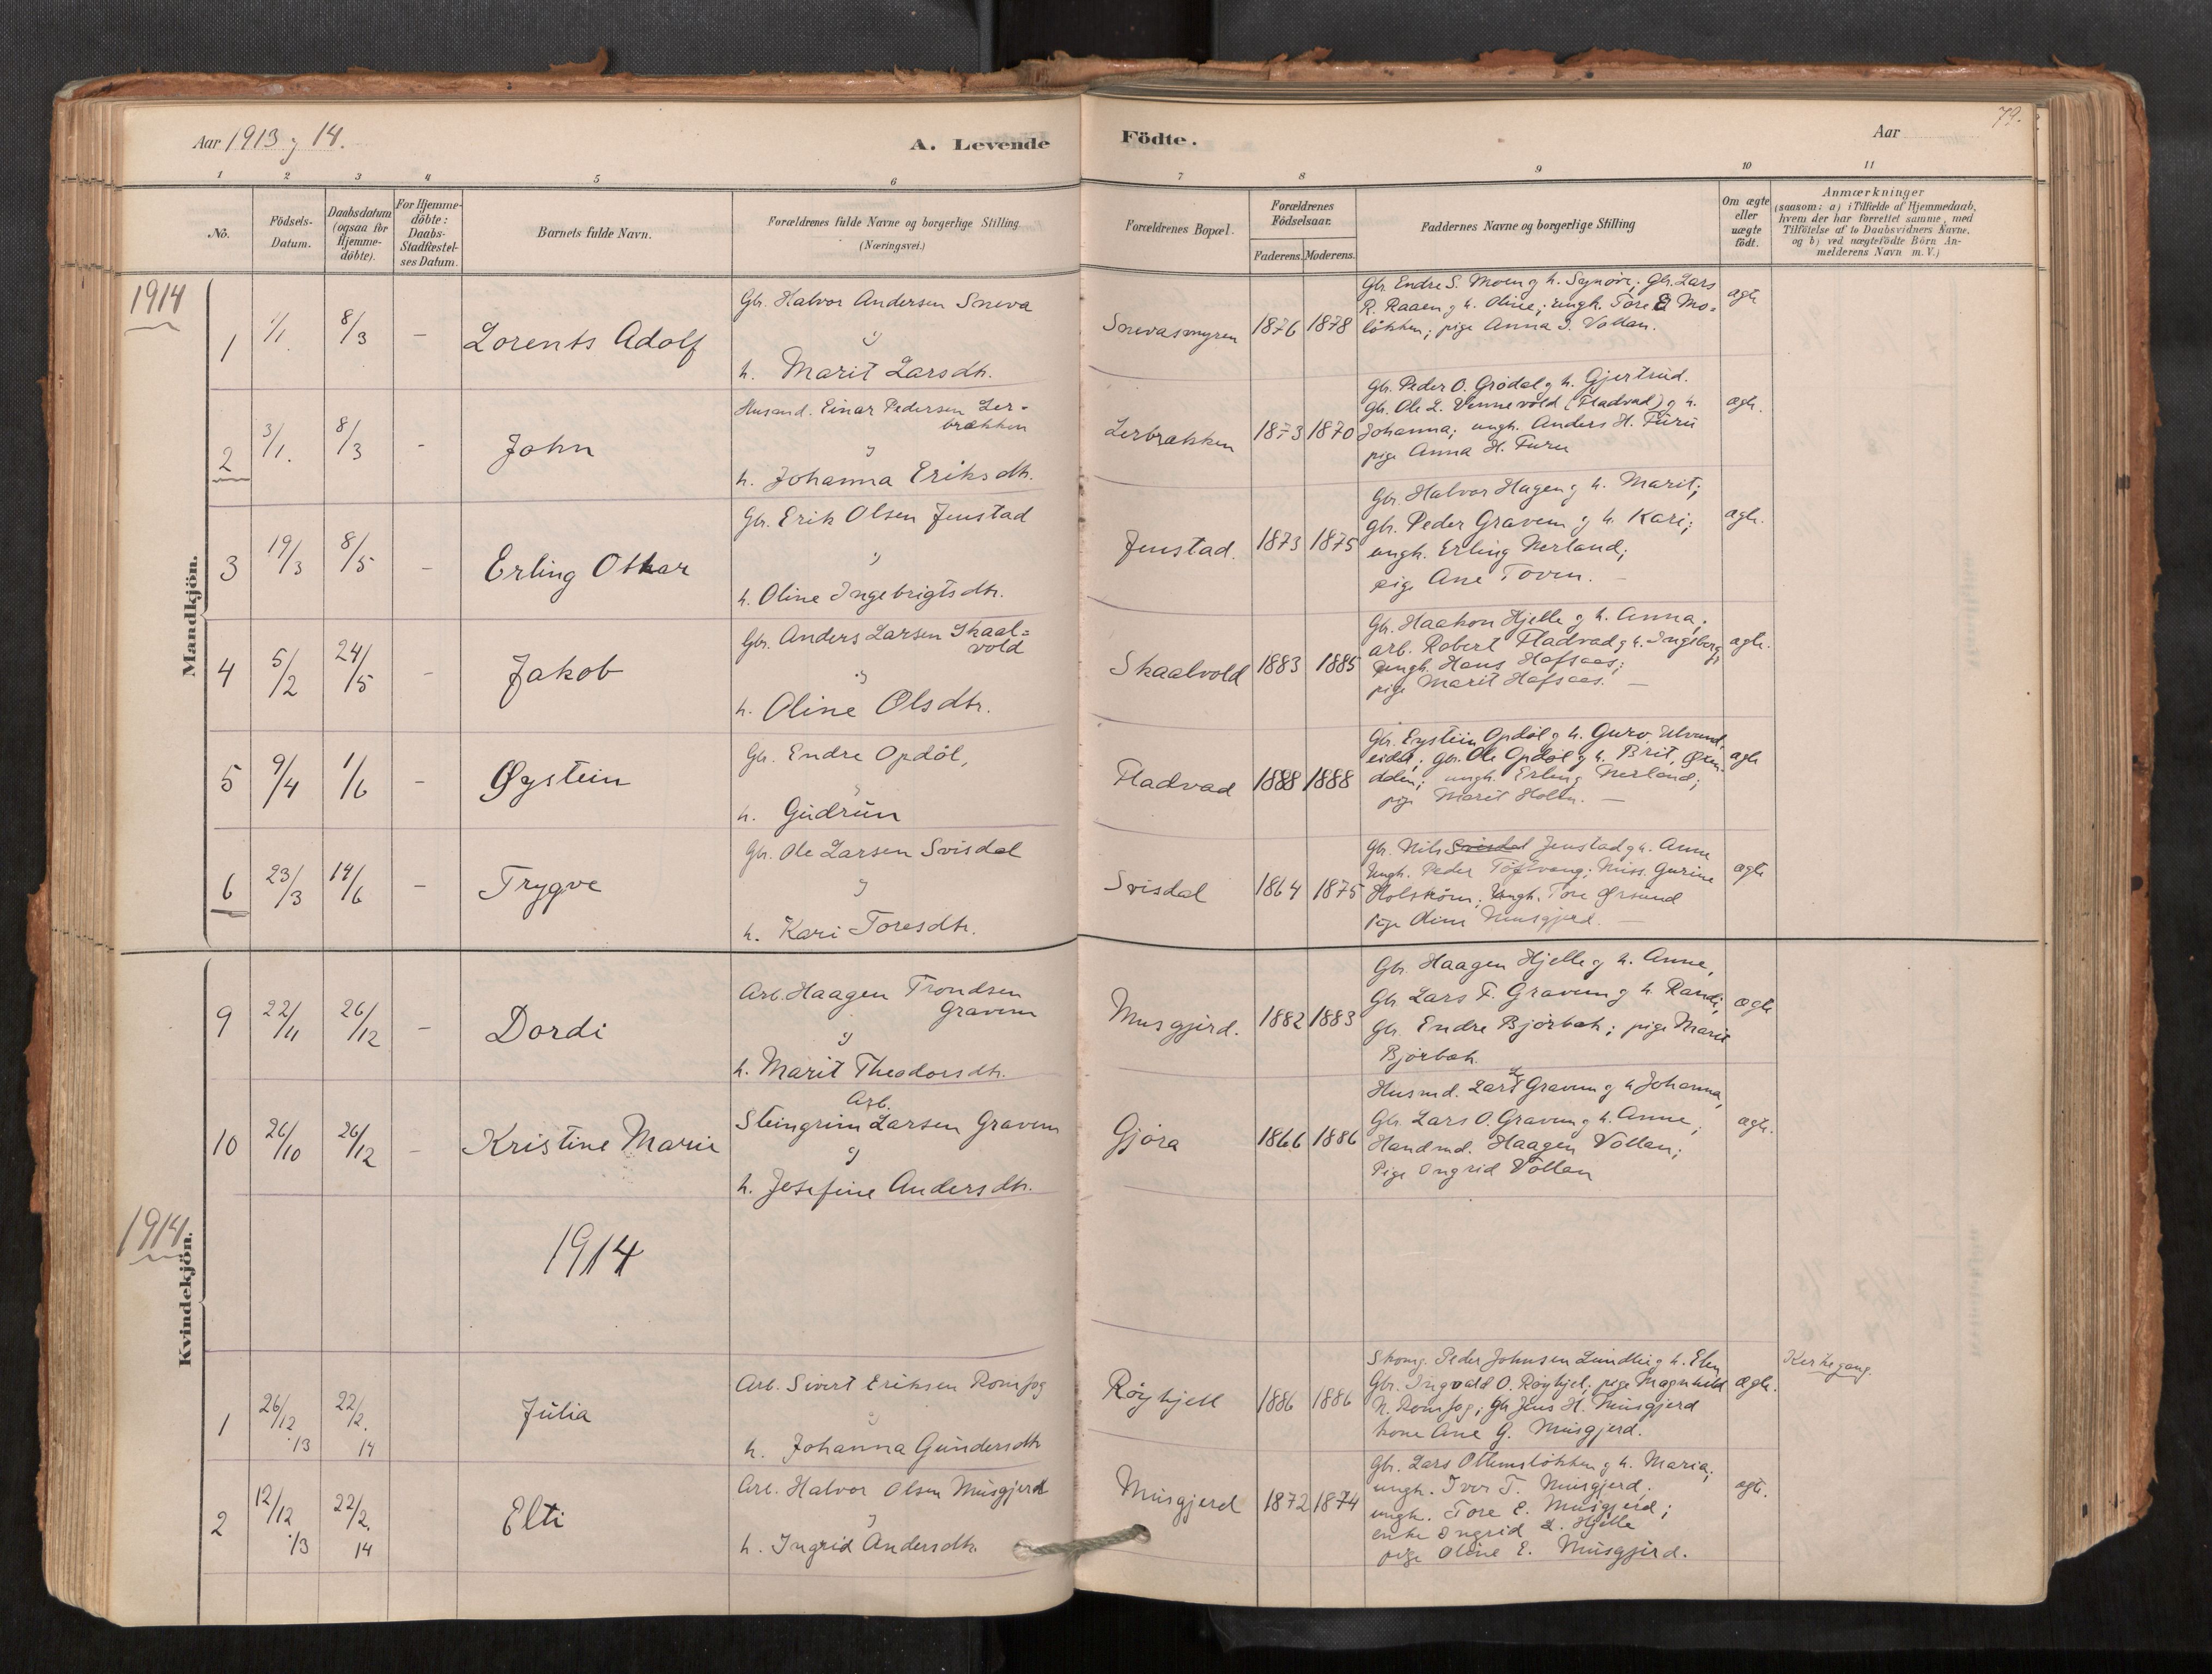 Aar 1913 og 14.
A. Levende Födte.
Aar
79.
1 2 3 4 5 6 7 8 9 10 11
Nô.
Födsels-Datum.
Daabsdatum (ogsaa for Hjemme-döbte).
For Hjemme-döbte: Daabs-Stadfæstel-ses Datum.
Barnets fulde Navn.
Forældrenes fulde Navne og borgerlige Stilling
(Næringsvei.)
Forældrenes Bopæl.
Forældrenes Födselsaar.
Faderens. Moderens.
Faddernes Navne og borgerlige Stilling
Om ægte eller uægte födt.
Anmærkninger
(saasom: a) i Tilfælde af Hjemmedaab,
hvem der har forrettet samme, med
Tilföielse af to Daabsvidners Navne,
og b) ved uægtefödte Börn An-
melderens Navn m.V.)
Mandkjön.
1914
1 1/1. 8/3 - Lorents Adolf
Gbr. Halvor Andersen Sneva
og
h. Marit Larsdtr.
Snevasmyren 1876 1878
Gbr. Endre S. Moen og h. Synøve; Gbr. Lars
R. Raaen og h. Oline; ungk. Tore E Mo-
løkken; pige Anna I. Vollan.
ægte
2 3/1. 8/3 - John
Husmd. Einar Pedersen Ler-
brækken
og
h. Johanna Eriksdtr.
Lerbrækken 1873 1870
Gbr. Peder O. Grødal og h. Gjertrud.
Gbr. Ole L. Vennevold (Fladvad) og h.
Johanna; ungk. Anders H. Furu
pige Anna H. Furu
ægte.
3 19/3 8/5 - Erling Otkar
Gbr. Erik Olsen Jenstad
og
h. Oline Ingebrigtsdtr.
Jenstad. 1873 1875
Gbr. Halvor Hagen og h. Marit;
gbr. Peder Gravem og h. Kari;
ungk. Erling Nerland;
pige Ane Toven. -
ægte.
4 5/2 24/5 - Jakob
Gbr. Anders Larsen Skaal-
vold
og
h. Oline Olsdtr.
Skaalvold 1883 1885
Gbr. Haakon Hjelle og h. Anna;
arb. Robert Fladvad og h. Ingeborg;
ungk. Hans Hafsaas;
pige Marit Hafsaas. -
ægte.
5 9/4 1/6 - Øystein
Gbr. Endre Opdøl,
og
h. Gudrun
Fladvad 1888 1888
Gbr. Eystein Opdøl og h. Guro, Ulvund-
eidet; gbr. Ole Opdøl og h. Brit, Øxen-
dalen; ungk. Erling Nerland;
pige Marit Holen. -
ægte
6 23/3 14/6 - Trygve
Gbr. Ole Larsen Svisdal
og
h. Kari Toresdtr.
Svisdal 1864 1875
Gbr. Nils Svisdal Jenstad og h. Anne
Ungk. Peder Toftvang; Miss. Gurine
Ungk. Tore Ørsund
pige Oline Musgjerd. -
ægte
Kvindekjön.
9 22/11 26/12 - Dordi
Arb. Haagen Trondsen
Gravem
og
h. Marit Theodorsdtr.
Musgjerd. 1882 1883
Gbr. Haagen Hjelle og h. Anne,
Gbr. Lars F. Gravem og h. Randi;
Gbr. Endre Bjørbæk; pige Marit
Bjørbæk.
ægte
10 26/10 26/12 - Kristine Marie
Arb.
Steingrim Larsen Gravem
og
h. Josefine Andersdtr.
Gjøra 1866 1886
Husmd. Lars Gravem og h Johanna,
Gbr. Lars O. Gravem og h. Anne;
Handmd. Haagen Vollan;
Pige Ingrid Vollan
ægte.
1914.
1914
1 26/12 13 22/2. 14 Julia
Arb. Sivert Eriksen Romfog
og
h. Johanna Gundersdtr
Røykjell 1886 1886
Skomg. Peder Johnsen Lundli og h. Elen
Gbr. Ingvald O. Røykjel; pige Magnhild
N. Romfog; Gbr Jens H. Musgjerd
kone Ane G. Musgjerd.
ægte.
Kirkegang.
2 12/12 13 22/2. 14 Elti
Arb. Halvor Olsen Musgjerd
og
h. Ingrid Andersdtr.
Musgjerd 1872 1874
Gbr. Lars Ottemsløkken og h. Maria;
ungk. Iver T. Musgjerd;
ungk. Tore E. Musgjerd;
enke Ingrid L. Hjelle
pige Oline E. Musgjerd.
ægte.